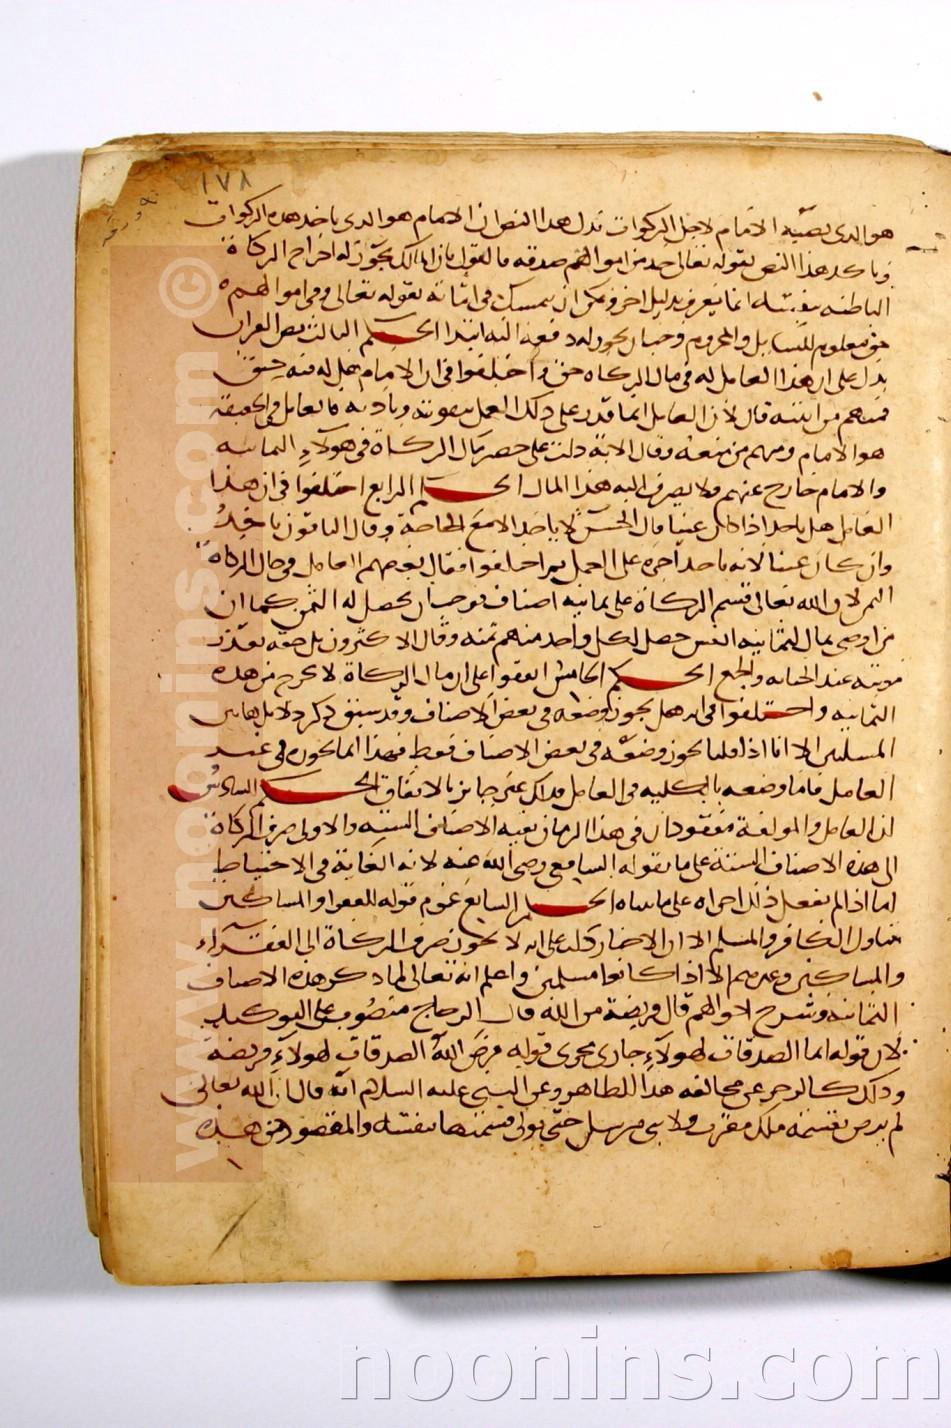 ١٧٨
هو الذى نصبه الامام لاجل الزكوات فدل هذا النص ان الامام هو الذى ياخذ هذه الزكوات
وتاكد هذا النص بقوله تعالى خذ من اموالهم صدقة فالقول بان المالك يجوز له اخراج الزكاة
الباطنة بنفسه انما يعرف بدليل اخر ويمكن ان يتمسك فى اثباته بقوله تعالى وفى اموالهم
حق معلوم للسايل والمحروم وحب ان يجوز له دفعه اليه ابتدا الحكم الثالث نص القران
يدل على ان هذا العامل له فى مال الزكاة حق واختلفوا فى ان الامام هل له فيه حق
فمنهم من اثبته قال لان العامل انما قدر على ذلك العمل بتقويته وباذنه فالعامل فى الحقيقة
هو الامام ومنهم من منعه وقال الاية دلت على حصر مال الزكاة فى هؤلاء الثمانيه
والامام خارج عنهم فلا يصرف اليه هذا المال الحكم الرابع اختلفوا فى ان هذا
العامل هل ياخذ اذا كان غنيا قال الحسن لا ياخذ الا مع الحاجة وقال الباقون ياخذ
وان كان غنيا لانه ياخذ اجرة على العمل ثم اختلفوا فقال بعضهم العامل فى مال الزكاة
الثمن لان الله تعالى قسم الزكاة على ثمانيه اصناف فوجب ان يحصل له الثمن كما ان
من اوصى بمال لثمانيه انفس حصل لكل واحد منهم ثمنه وقال الاكثرون بل حقه بقدر
مونته عند الجباية والجمع الحكم الخامس اتفقوا على ان مال الزكاة لا يخرج من هذه
الثمانيه واختلفوا فى انه هل يجوز وضعه فى بعض الاصناف وقد سبق ذكر دلايل هاتين
المسلتين الا انا اذا قلنا يجوز وضعه فى بعض الاصناف فقط فهذا انما يجوز فى غير
العامل فاما وضعه بالكلية فى العامل فذلك غير جايز بالاتفاق الحكم السادس
ان العامل والمولفة مفقودان فى هذا الزمان بقيه الاصناف الستة والاولى صرف الزكاة
الى هذه الاصناف الستة على ما يقوله الشافعى رضى الله عنه لانه الغاية فى الاحتياط
اما اذا لم يفعل ذلك اجزاه على ما بيناه الحكم السابع عموم قوله للفقرا والمساكين
يتناول الكافر والمسلم الا ان الاخبار دلت على انه لا يجوز صرف الزكاة الى الفقراء
والمساكين وغيرهم الا اذا كانوا مسلمين واعلم انه تعالى لما ذكر هذه الاصناف
الثمانية وشرح احوالهم قال فريضة من الله قال الزجاج منصوب على التوكيد
لان قوله انما الصدقات لهؤلاء جارى مجرى قوله فرض الله الصدقات لهؤلاء فريضة
وذلك كالزجر عن مخالفه هذا الظاهر وعن النبى عليه السلام انه قال ان الله تعالى
لم يرض بقسمة ملك مقرب ولا نبى مرسل حتى تولى قسمتها بنفسه والمقصود من هذه
www.noonins.com ©
noonins.com